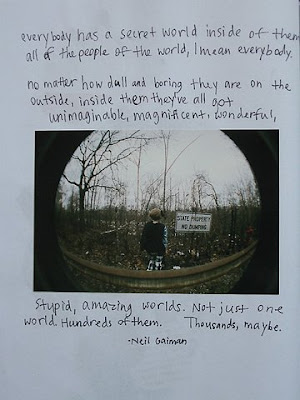 everybody has a secret world inside of them
all of the people of the world, I mean everybody.
no matter how dull and boring they are on the
outside, inside them they've all got
unimaginable, magnificent, wonderful,
STATE PROPERTY
NO DUMPING
Stupid, amazing worlds. Not just one
world. Hundreds of them. Thousands, maybe.
-Neil Gaiman